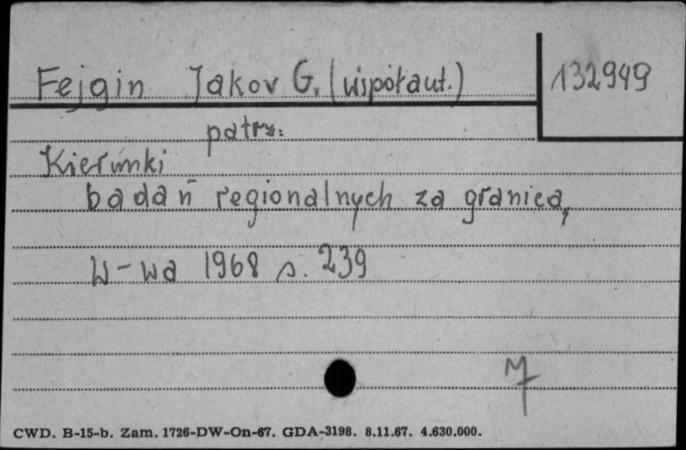 Fejgin Jakov G. (współaut.) 132949
patrz:
Kierunki
badań regionalnych za granicą,
W-wa 1968 s. 239
M
CWD. B-15-b. Zam. 1726-DW-On-67. GDA-3198. 8.11.67. 4.630.000.